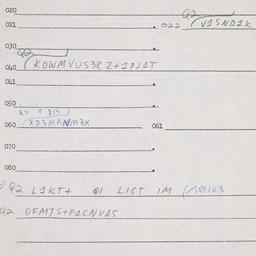 020
021 022 92 V1SND1K
030 92
040 KOWMVUS3R Z+1PJ1T
041
050
060 XD3MANM3X 061
070
080
92 L1KT+ 91 LIGT IM
92 OFM7S+P1CNU15